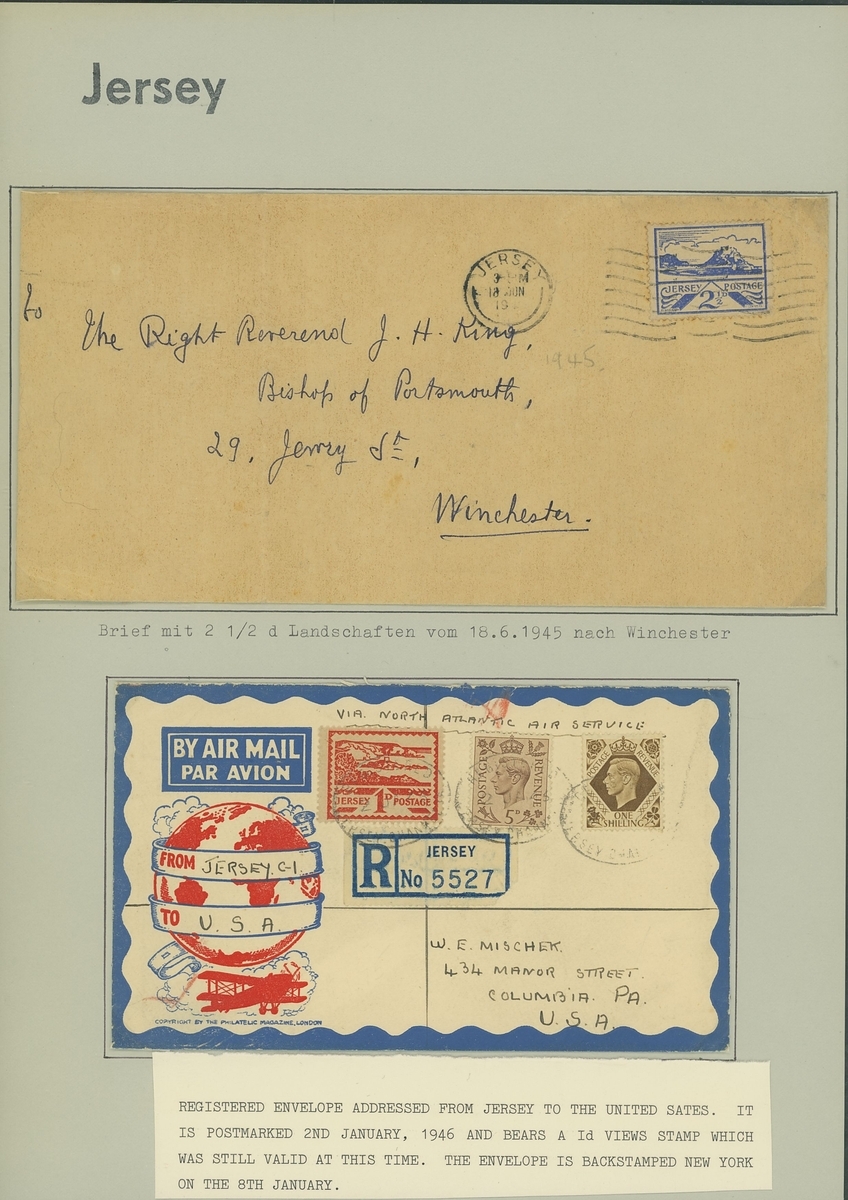 Jersey
JERSEY
18 JUN
JERSEY POSTAGE
2½D
To
The Right Reverend J. H. King,
1945.
Bishop of Portsmouth,
29, Jewry St,
Winchester.
Brief mit 2 1/2 d Landschaften vom 18.6.1945 nach Winchester
VIA NORTH ATLANTIC AIR SERVICE
BY AIR MAIL
PAR AVION
JERSEY 1D POSTAGE
POSTAGE REVENUE
5D
POSTAGE REVENUE
ONE SHILLING
FROM JERSEY. C-I.
TO U. S. A.
R JERSEY
No 5527
W. E. MISCHEK.
434 MANOR STREET.
COLUMBIA. PA.
U. S. A.
COPYRIGHT BY THE PHILATELIC MAGAZINE, LONDON
REGISTERED ENVELOPE ADDRESSED FROM JERSEY TO THE UNITED SATES. IT
IS POSTMARKED 2ND JANUARY, 1946 AND BEARS A Id VIEWS STAMP WHICH
WAS STILL VALID AT THIS TIME. THE ENVELOPE IS BACKSTAMPED NEW YORK
ON THE 8TH JANUARY.